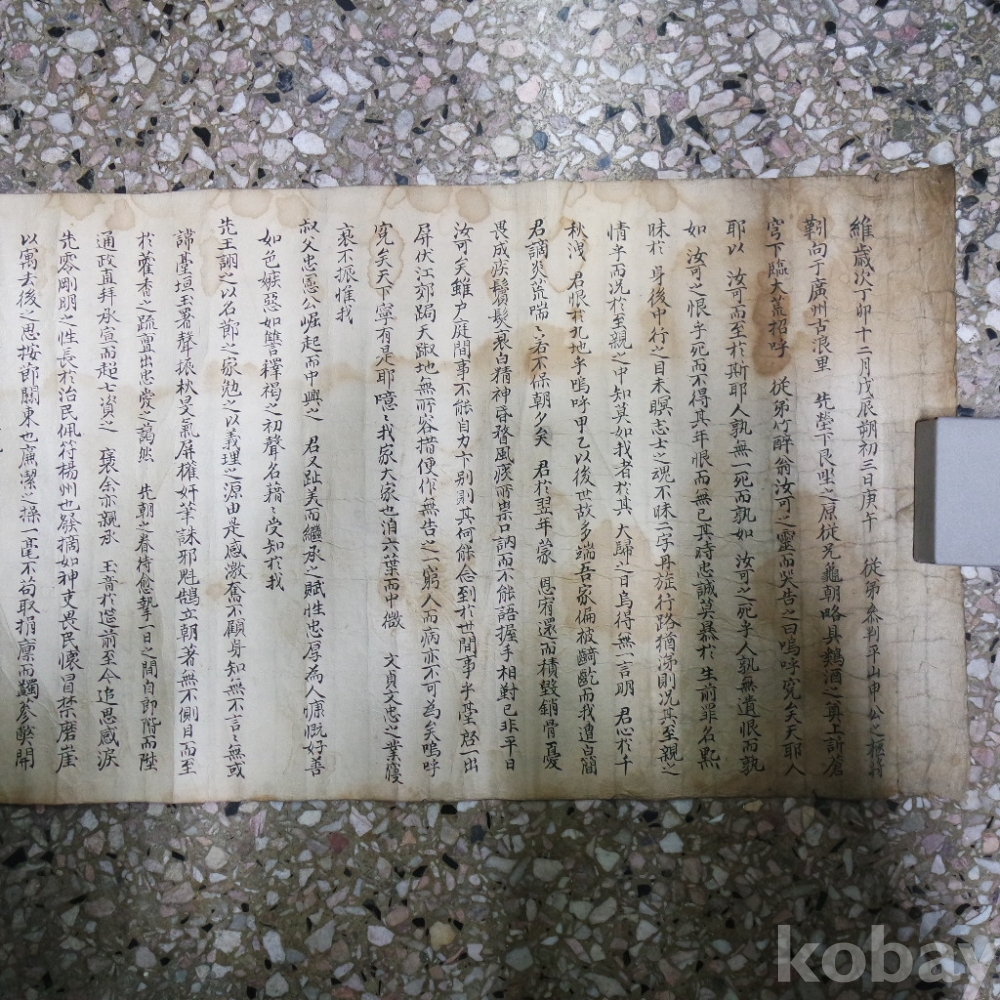 維歲次丁卯十二月戊辰朔初三日庚午 從弟參判平山申公之柩將
靷向于廣州古浪里 先塋下艮坐之原從兄龜朝略具鷄酒之奠上訴蒼
穹下臨大荒招呼 從弟竹醉翁汝可之靈而哭告之曰嗚呼冤矣天耶人
耶以 汝可而至於斯耶人孰無一死而孰如 汝可之死乎人孰無遺恨而孰
如 汝可之恨乎死而不得其年恨而無已其時忠誠莫暴於 生前罪名黑
昧於 身後中行之目未瞑志士之魂不昧二字丹旌行路猶涕則况其至親之
情乎而况於至親之中知莫如我者於其 大歸之日烏得無一言明 君心於千
秋洩 君恨於九地乎嗚呼甲乙以後世故多端吾家偏被齮齕而我遭白簡
君謫炎荒喘喘若不保朝夕矣 君於翌年蒙 恩宥還而積毁銷骨憂
畏成疾鬢髮衰白精神昏瞀風痰所祟口訥而不能語握手相對已非平日
汝可矣雖戶庭間事不能自力卞別則其何能念到於世間事乎臺啓一出
屛伏江郊跼天蹴地無所容措便作無告之窮人而病亦不可為矣嗚呼
冤矣天下寧有是耶噫噫我家大家也洎六葉而中微 文貞文忠之業寢
衰不振惟我
叔父忠憲公崛起而中興之 君又趾美而繼承之賦性忠厚為人慷慨好善
如色嫉惡如讐釋褐之初聲名藉藉受知於我
先王詡之以名節之家勉之以義理之源由是感激奮不顧身知無不言言無或
諱臺垣玉署聲振秋旻氣屛權奸筆誅邪魁鵠立朝著無不側目而至
於藿香之疏亶出忠愛之藹然 先朝之眷待愈摯一日之間自郎階而陞
通政直拜承宣而超七資之 褒余亦親承 玉音於造前至今追思感淚
先零剛明之性長於治民佩符楊州也發摘如神吏畏民懷冒禁磨崖
以寓去後之思按節關東也廉潔之操一毫不苟取捐廩而蠲蔘弊開